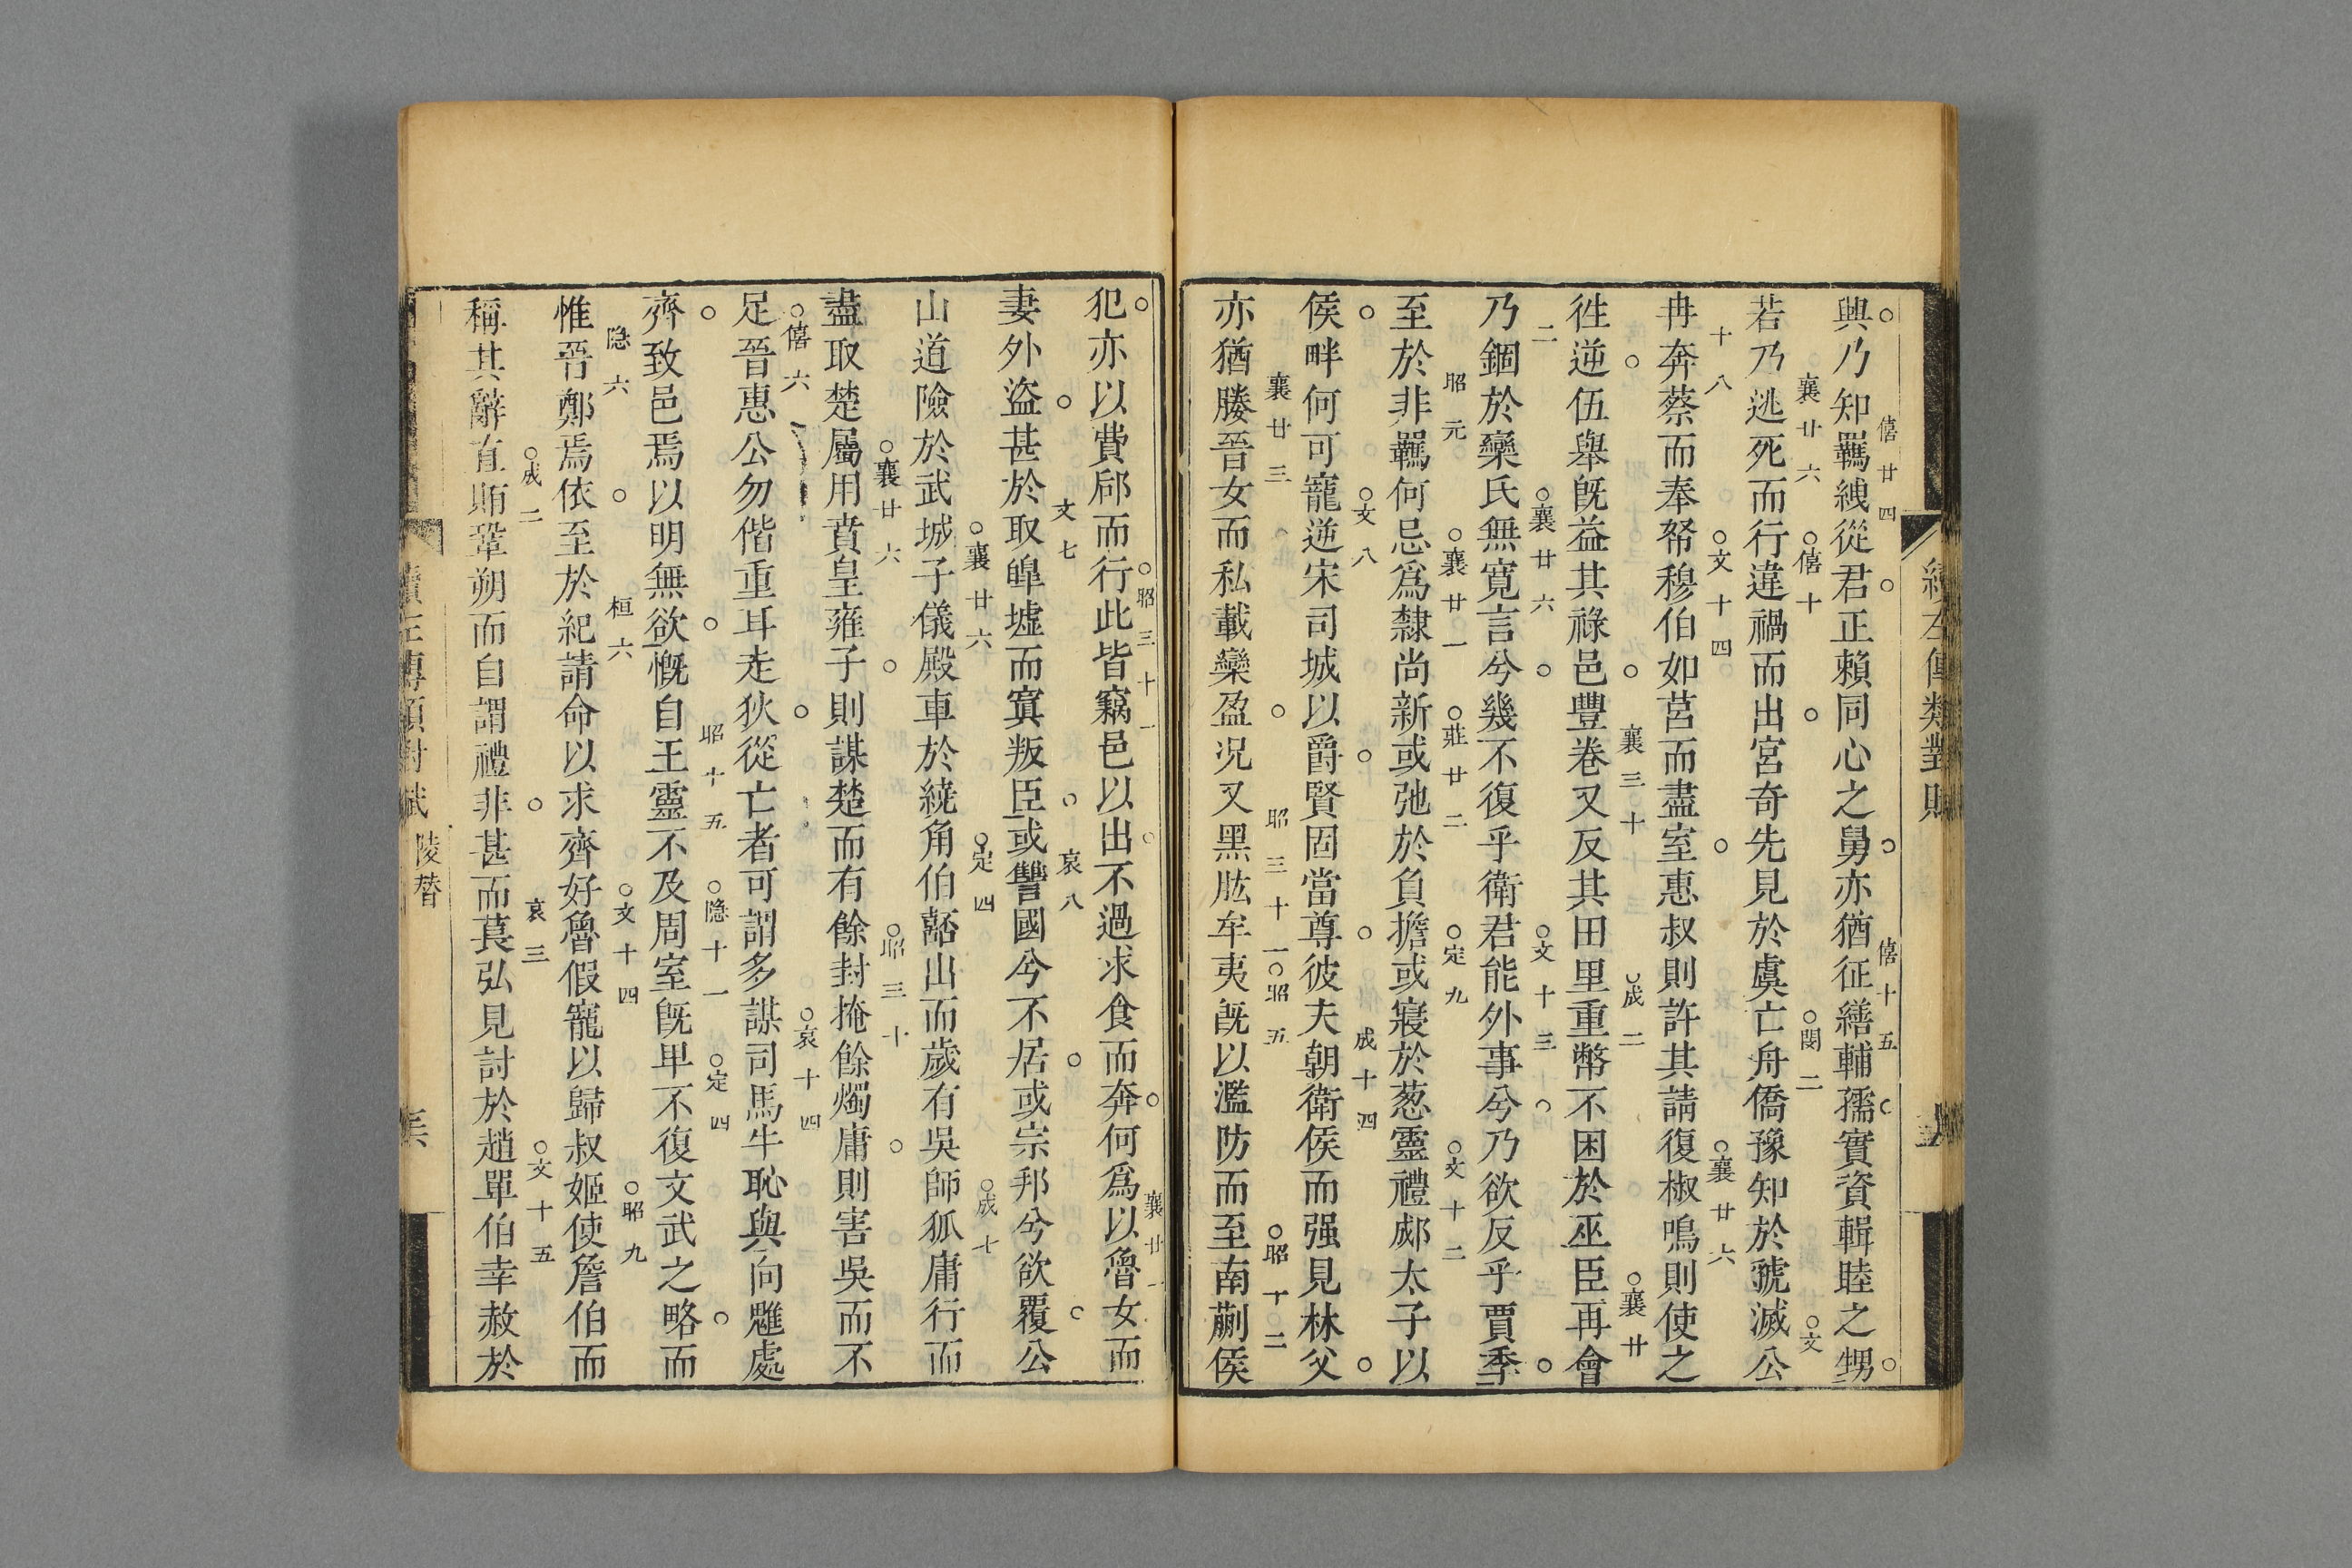 續左傳類對賦
興乃知羈絏從君正賴同心之舅亦猶征繕輔孺實資輯睦之甥
僖廿四 僖十五
若乃逃死而行違禍而出宮奇先見於虞亡舟僑豫知於虢滅公
襄廿六 僖十 閔二 文
冉奔蔡而奉帑穆伯如莒而盡室惠叔則許其請復椒鳴則使之
十八 文十四 襄廿六
徃逆伍舉旣益其祿邑豐卷又反其田里重幣不困於巫臣再會
襄三十 成二 襄廿
乃錮於欒氏無寬言兮幾不復乎衛君能外事兮乃欲反乎賈季
二 襄廿六 文十三
至於非羈何忌爲隸尚新或弛於負擔或寢於葱靈禮郕太子以
昭元 襄廿一 莊廿二 定九 文十二
侯畔何可寵逆宋司城以爵賢固當尊彼夫朝衛侯而强見林父
文八 成十四
亦猶媵晉女而私載欒盈况又黑肱牟夷旣以濫防而至南蒯侯
襄廿三 昭三十一 昭五 昭十二
犯亦以費郈而行此皆竊邑以出不過求食而奔何爲以魯女而
昭三十一 襄廿一
妻外盜甚於取皥墟而寘叛臣或讐國兮不居或宗邦兮欲覆公
文七 哀八
山道險於武城子儀殿車於繞角伯嚭出而歲有吳師狐庸行而
襄廿六 定四 成七
盡取楚屬用賁皇雍子則謀楚而有餘封掩餘燭庸則害吳而不
襄廿六 昭三十
足晉惠公勿偕重耳走狄從亡者可謂多謀司馬牛恥與向魋處
僖六 哀十四
齊致邑焉以明無欲慨自王靈不及周室旣卑不復文武之略而
昭十五 隐十一 定四
惟晉鄭焉依至於紀請命以求齊好魯假寵以歸叔姬使詹伯而
隐六 桓六 文十四 昭九
稱其辭直賄鞏朔而自謂禮非甚而萇弘見討於趙單伯幸赦於
成二 哀三 文十五
續左傳類對賦
陵朁